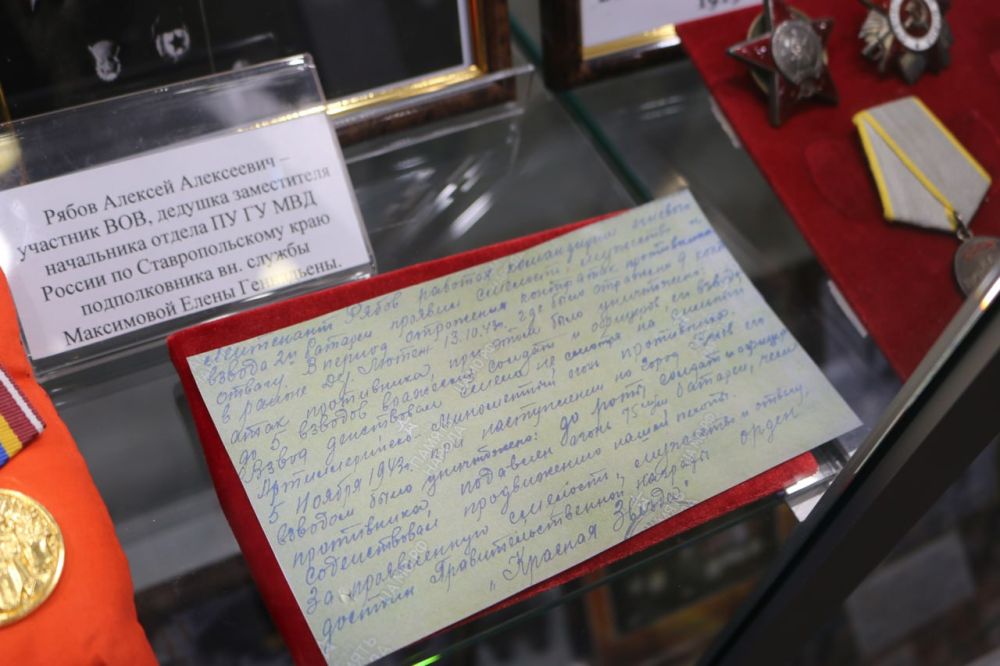 Рябов Алексей Алексеевич –
участник ВОВ, дедушка заместителя
начальника отдела ПУ ГУ МВД
России по Ставропольскому краю
подполковника вн. службы
Максимовой Елены Геннадьевны.
лейтенант Рябов работая командиром огневого
взвода 2й батареи проявил смелость, мужество и
отвагу. В период отражения контратак противника
в районе д. Лютеж 13.10.43г. где было отражено 9 контр
атак противника, при этом было уничтожено:
до 5 взводов вражеских солдат и офицеров, его взводу,
Взвод действовал смело не смотря на сильный
Артиллерийско-Миномётный огонь противника.
5 Ноября 1943г. при наступлении на город Киев его
взводом было уничтожено: до роты солдат и офицеров
противника, подавлен огонь 75 м/м батареи, чем
содействовал продвижению нашей пехоты.
За проявленную смелость, мужество и отвагу,
достоин Правительственной награды орден
"Красная Звезда".